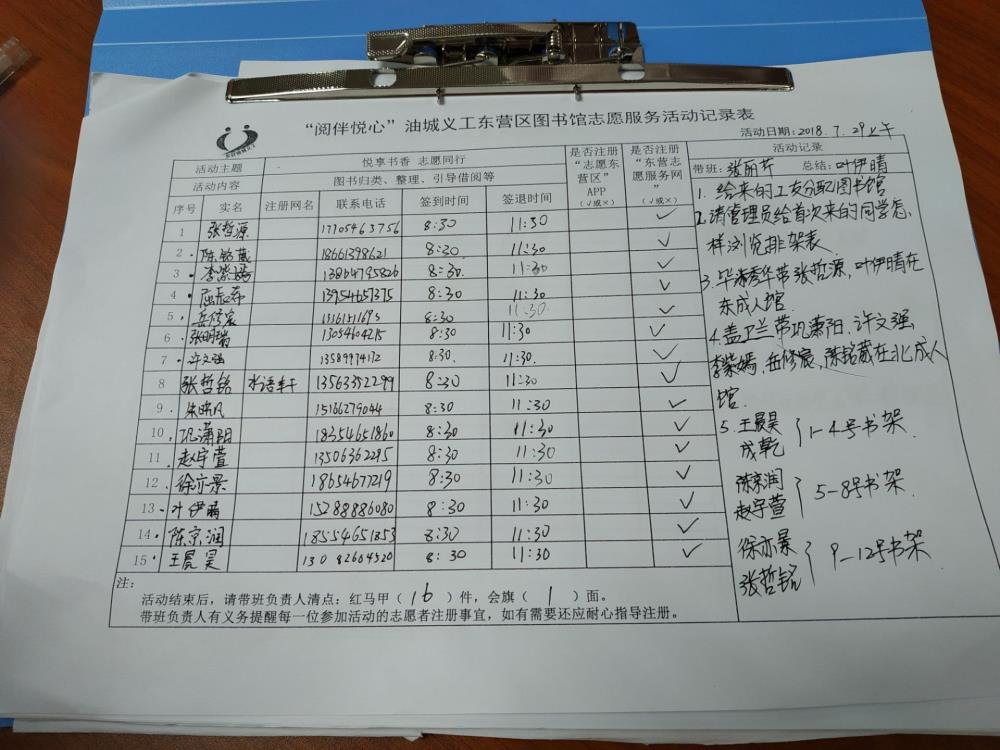 “阅伴悦心”油城义工东营区图书馆志愿服务活动记录表
活动日期:2018.7.29上午
活动主题 悦享书香 志愿同行 是否注册“志愿东营区”APP(√或×) 是否注册“东营志愿服务网”(√或×) 活动记录
活动内容 图书归类、整理、引导借阅等
序号 实名 注册网名 联系电话 签到时间 签退时间
1 张哲源 17705463756 8:30 11:30 ✓
2 陈铭葳 18661398621 8:30 11:30 ✓
3 李紫嫣 13864795826 8:30 11:30 ✓
4 屈辰希 13954657375 8:30 11:30 ✓
5 岳修宸 8:30 11:30 ✓
6 张明瑞 13054604215 8:30 11:30 ✓
7 许文强 13589974172 8:30 11:30 ✓
8 张哲铭 水语轩 13563352299 8:30 11:30 ✓
9 朱晓凡 15166279044 8:30 11:30 ✓
10 巩潇阳 18354651860 8:30 11:30 ✓
11 赵宇萱 13506362285 8:30 11:30 ✓
12 徐亦景 18654677219 8:30 11:30 ✓
13 叶伊晴 15288886080 8:30 11:30 ✓
14 陈京润 18554651853 8:30 11:30 ✓
15 王晨昊 13082664520 8:30 11:30 ✓
带班:张丽芹 总结:叶伊晴
1. 给来的工友分配图书馆
2.请管理员给首次来的同学怎
样浏览排架表
3.毕秀华带张哲源,叶伊晴在
东成人馆.
4.盖卫兰带巩潇阳.许文强
李紫嫣.岳修宸,陈铭葳在北成人
馆.
5.王晨昊
成乾 }1-4号书架
陈京润
赵宇萱 }5-8号书架
徐亦景
张哲铭 }9-12号书架
注:
活动结束后,请带班负责人清点:红马甲(16)件,会旗(1)面。
带班负责人有义务提醒每一位参加活动的志愿者注册事宜,如有需要还应耐心指导注册。